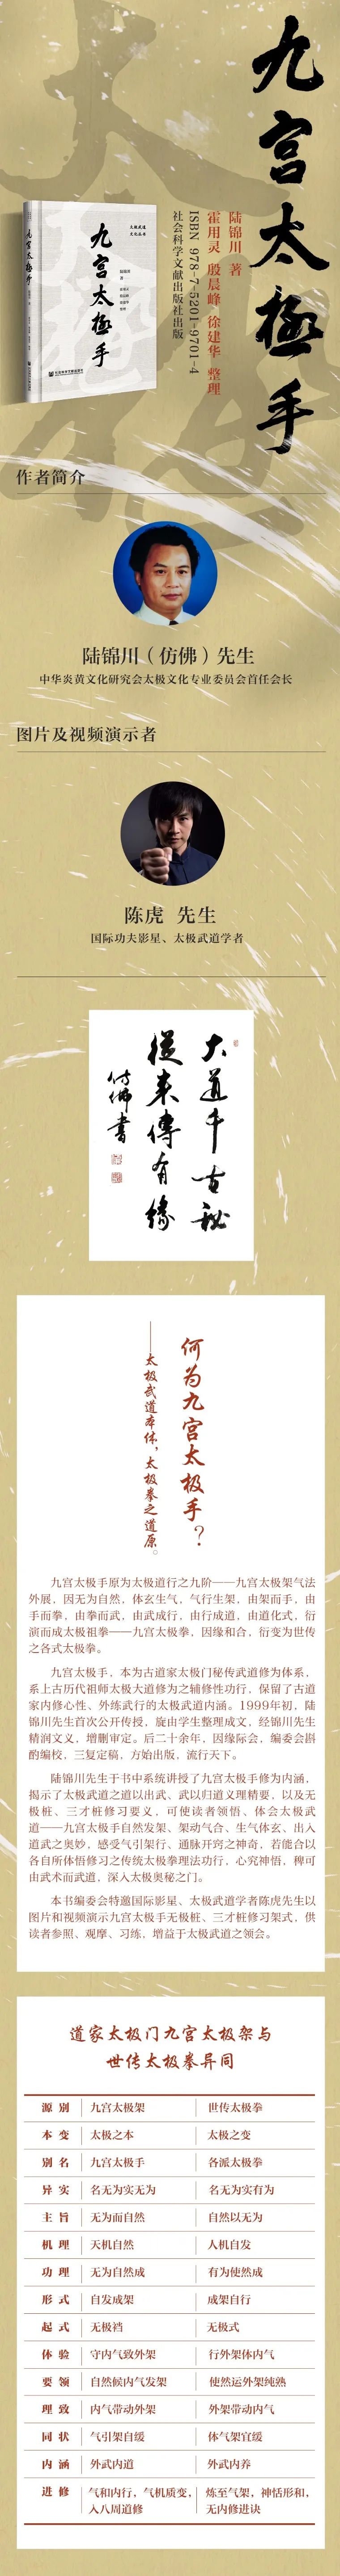 九宫太极手
陆锦川 著
霍用灵 殷晨峰 徐建华 整理
ISBN 978-7-5201-9701-4
社会科学文献出版社出版
九宫太極手
太极武道
文化丛书
九宫太極手
作者简介
陆锦川（仿佛）先生
中华炎黄文化研究会太极文化专业委员会首任会长
图片及视频演示者
陈虎 先生
国际功夫影星、太极武道学者
大道千古秘
從来傳有缘
仿佛書
何为九宫太极手？
——太极武道本体，太极拳之道原。
九宫太极手原为太极道行之九阶——九宫太极架气法
外展，因无为自然，体玄生气，气行生架，由架而手，由
手而拳，由拳而武，由武成行，由行成道，由道化式，衍
演而成太极祖拳——九宫太极拳，因缘和合，衍变为世传
之各式太极拳。
九宫太极手，本为古道家太极门秘传武道修为体系，
系上古历代祖师太极大道修为之辅修性功行，保留了古道
家内修心性、外练武行的太极武道内涵。1999年初，陆
锦川先生首次公开传授，旋由学生整理成文，经锦川先生
精润文义，增删审定。后二十余年，因缘际会，编委会斟
酌编校，三复定稿，方始出版，流行天下。
陆锦川先生于书中系统讲授了九宫太极手修为内涵，
揭示了太极武道之道以出武、武以归道义理精要，以及无
极桩、三才桩修习要义，可使读者领悟、体会太极武
道——九宫太极手自然发架、架动气合、生气体玄、出入
道武之奥妙，感受气引架行、通脉开窍之神奇，若能合以
各自所体悟修习之传统太极拳理法功行，心究神悟，稗可
由武术而武道，深入太极奥秘之门。
本书编委会特邀国际影星、太极武道学者陈虎先生以
图片和视频演示九宫太极手无极桩、三才桩修习架式，供
读者参照、观摩、习练，增益于太极武道之领会。
道家太极门九宫太极架与
世传太极拳异同
源别 九宫太极架 世传太极拳
本变 太极之本 太极之变
别名 九宫太极手 各派太极拳
异实 名无为实无为 名无为实有为
主旨 无为而自然 自然以无为
机理 天机自然 人机自发
功理 无为自然成 有为使然成
形式 自发成架 成架自行
起式 无极裆 无极式
体验 守内气致外架 行外架体内气
要领 自然候内气发架 使然运外架纯熟
理致 内气带动外架 外架带动内气
同状 气引架自缓 体气架宜缓
内涵 外武内道 外武内养
进修 气和内行，气机质变， 炼至气架，神恬形和，
入八周道修 无内修进诀